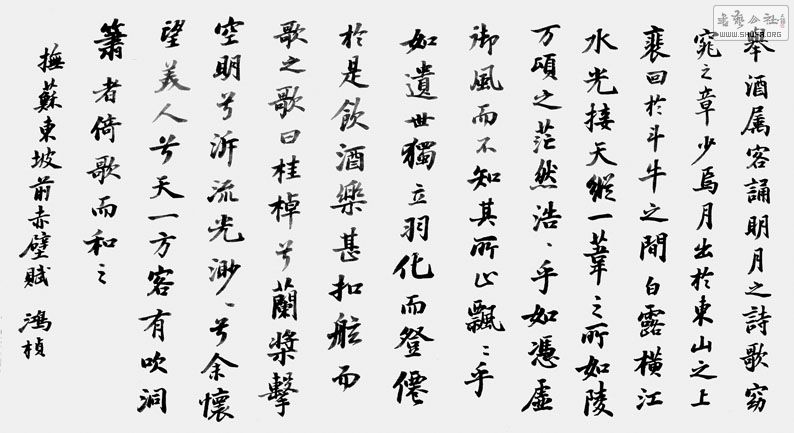 舉酒属客誦明月之詩歌窈
窕之章少焉月出於東山之上
裵回於斗牛之間白露横江
水光接天縱一葦之所如陵
万頃之茫然浩〻乎如憑虚
御風而不知其所止飄〻乎
如遺世獨立羽化而登僊
於是飲酒樂甚扣舷而
歌之歌曰桂棹兮蘭槳擊
空明兮泝流光渺〻兮余懷
望美人兮天一方客有吹洞
簫者倚歌而和之
撫蘇東坡前赤壁賦 鴻楨
WWW.SHUFA.ORG